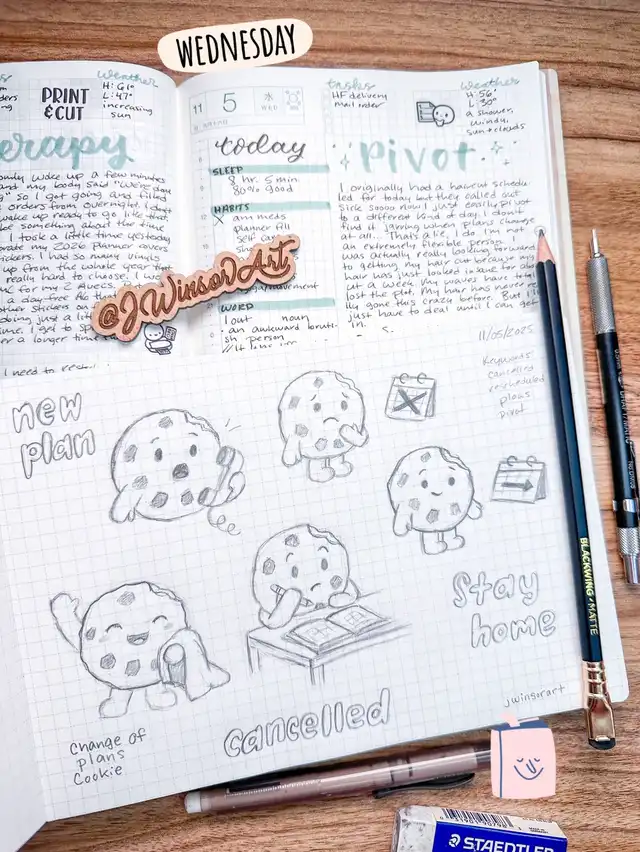 WEDNESDAY
weather
H: 61°
L: 47°
increasing
sun
PRINT
& CUT
erapy
woke up a few minutes
and my body said "We're
so I got going and filled
orders from overnight.
wake up ready to go like that
be something about the time
I took a little time yesterday
2026 planner
I had so many vinyls
up from the whole year that
really hard to choose. I
for my 2 Avecs.
doing just a li
I need to
11
5
水
today
SLEEP
8 hr. 5 min.
80% good
HABITS
X am meds
planner fill
self ca
movement
@JWinsorArt
WORD
lout noun
an awkward bruti-
sh person
tasks
HF delivery
mail order
weather
H: 56°
L: 30°
a shower,
windy,
sun + clouds
Pivot
I originally had a haircut schedu-
led for today but they called out
sick soooo now I just easily pivot
to a different kind of day. I don't
find it jarring when plans change
at all... That's a lie, I do. I'm not
an extremely flexible person. I
was actually really looking forward
to getting my hair cut because my
hair was just looking insane for abo
ut a week. My waves have
lost the plot. My hair has never re
lly gone this crazy before. But I'll
just have to deal until I can get
in.
11/05/2025
Keywords:
Cancelled
rescheduled
plans
pivot
new
plan
Stay
home
Cancelled
Change of
plans
Cookie
jwinsorart
BLACKWING MATTE
STAEDTLER